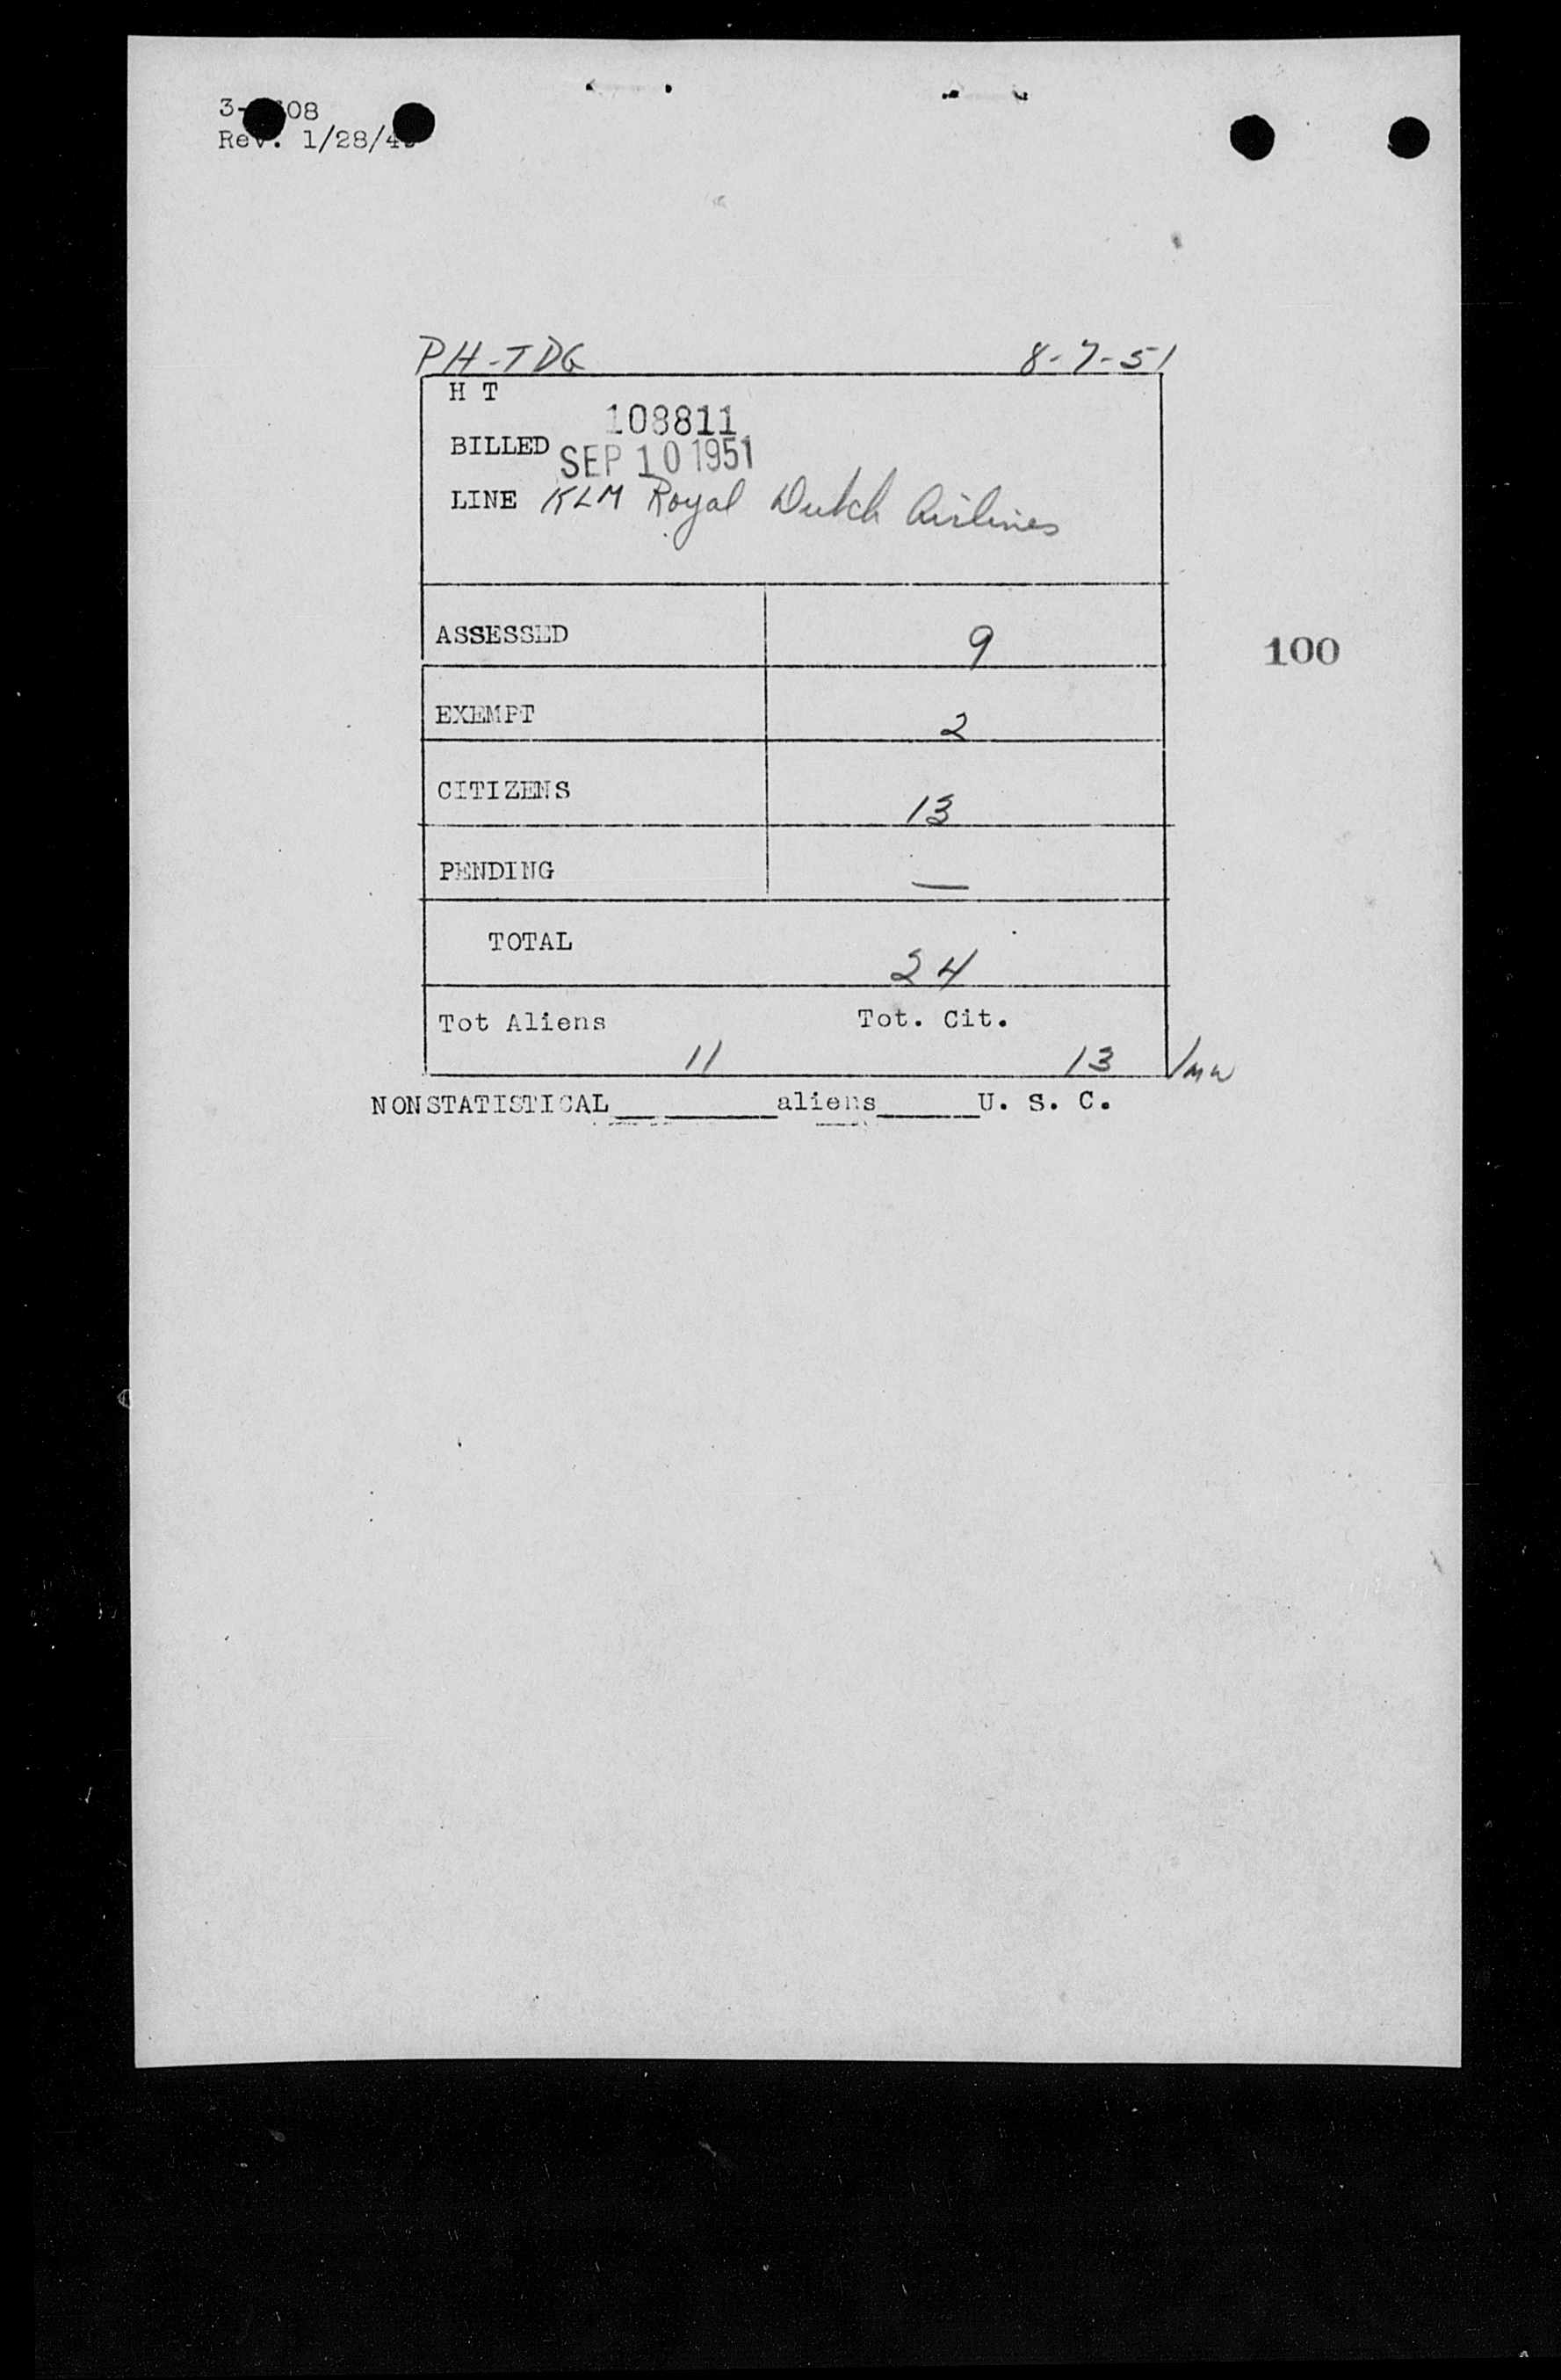 08
Rev. 1/28/4
PH-TDG 8-7-51
H T
108811
BILLED SEP 10 1951
LINE KLM Royal Dutch Airlines
ASSESSED 9
100
EXEMPT 2
CITIZENS 13
PENDING —
TOTAL 24
Tot Aliens Tot. Cit.
11 13 /mw
NONSTATISTICAL__________aliens______U. S. C.